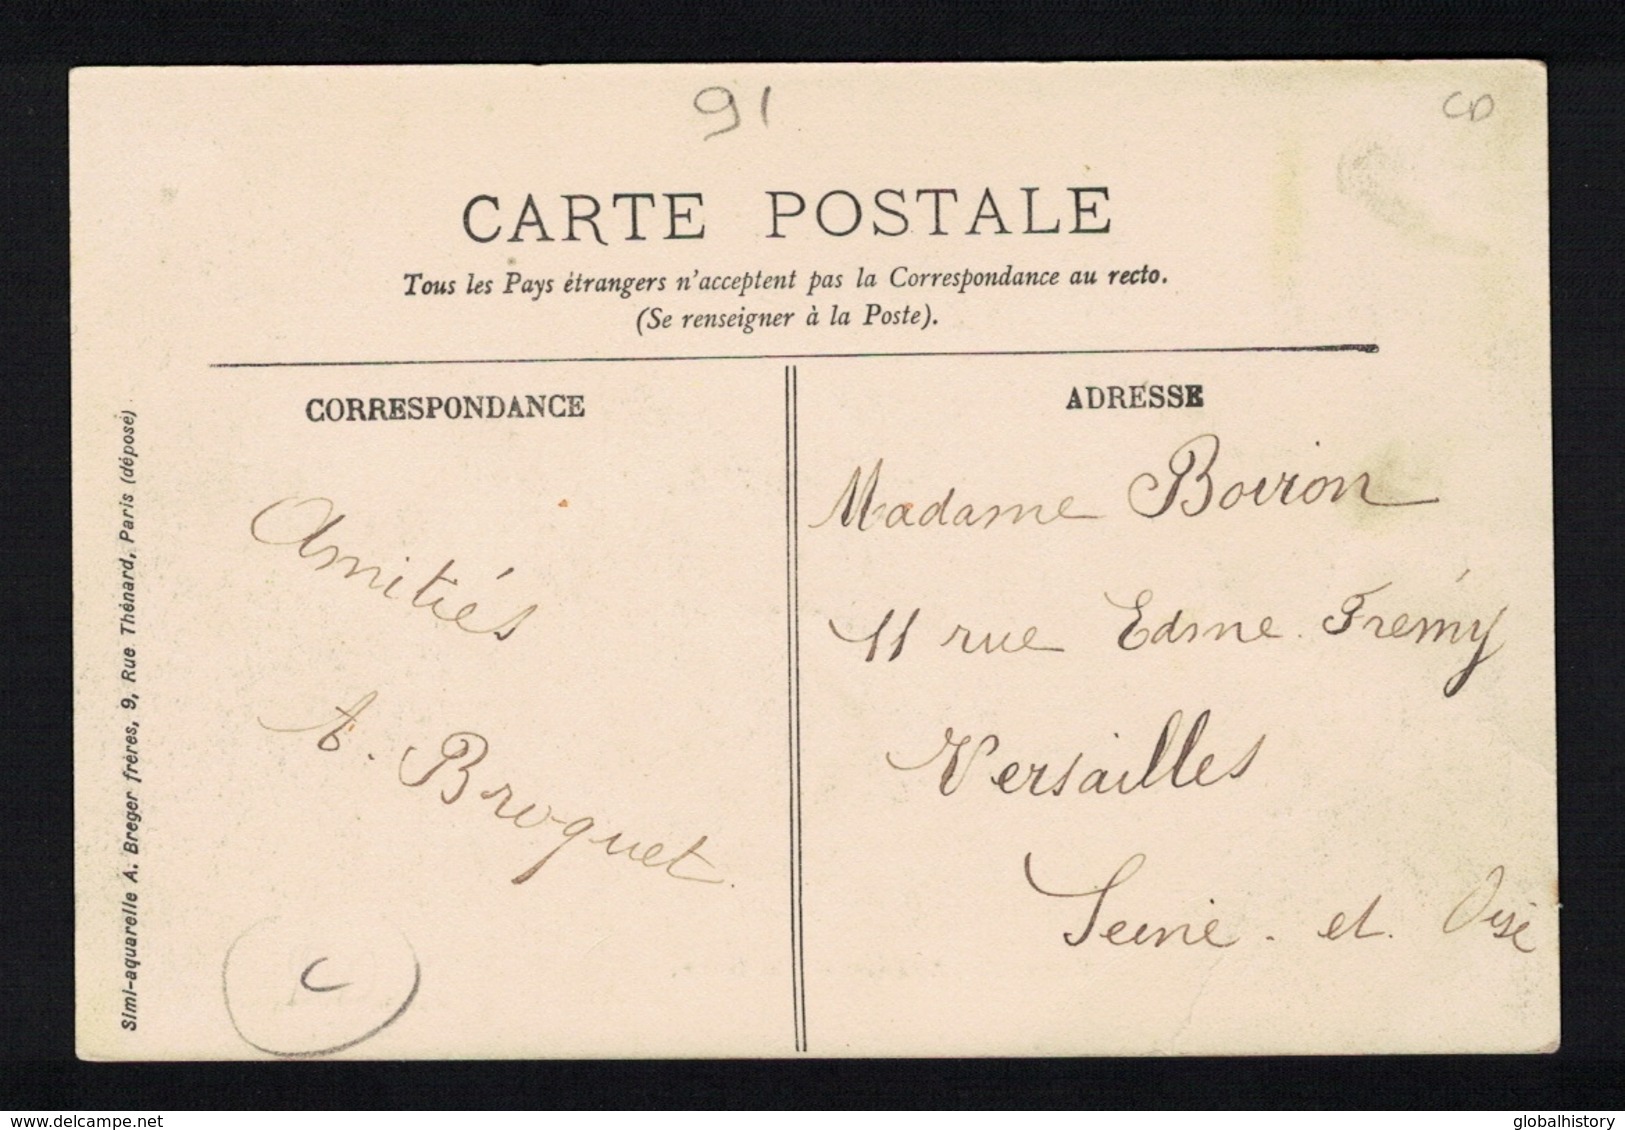 91
CD
CARTE POSTALE
Tous les Pays étrangers n'acceptent pas la Correspondance au recto.
(Se renseigner à la Poste).
CORRESPONDANCE
Amitiés
A. Broquet
C
ADRESSE
Madame Boiron
11 rue Edme Frémy
Versailles
Seine-et-Oise
Simi-aquarelle A. Breger frères, 9, Rue Thénard, Paris (déposé)
delcampe.net
globalhistory